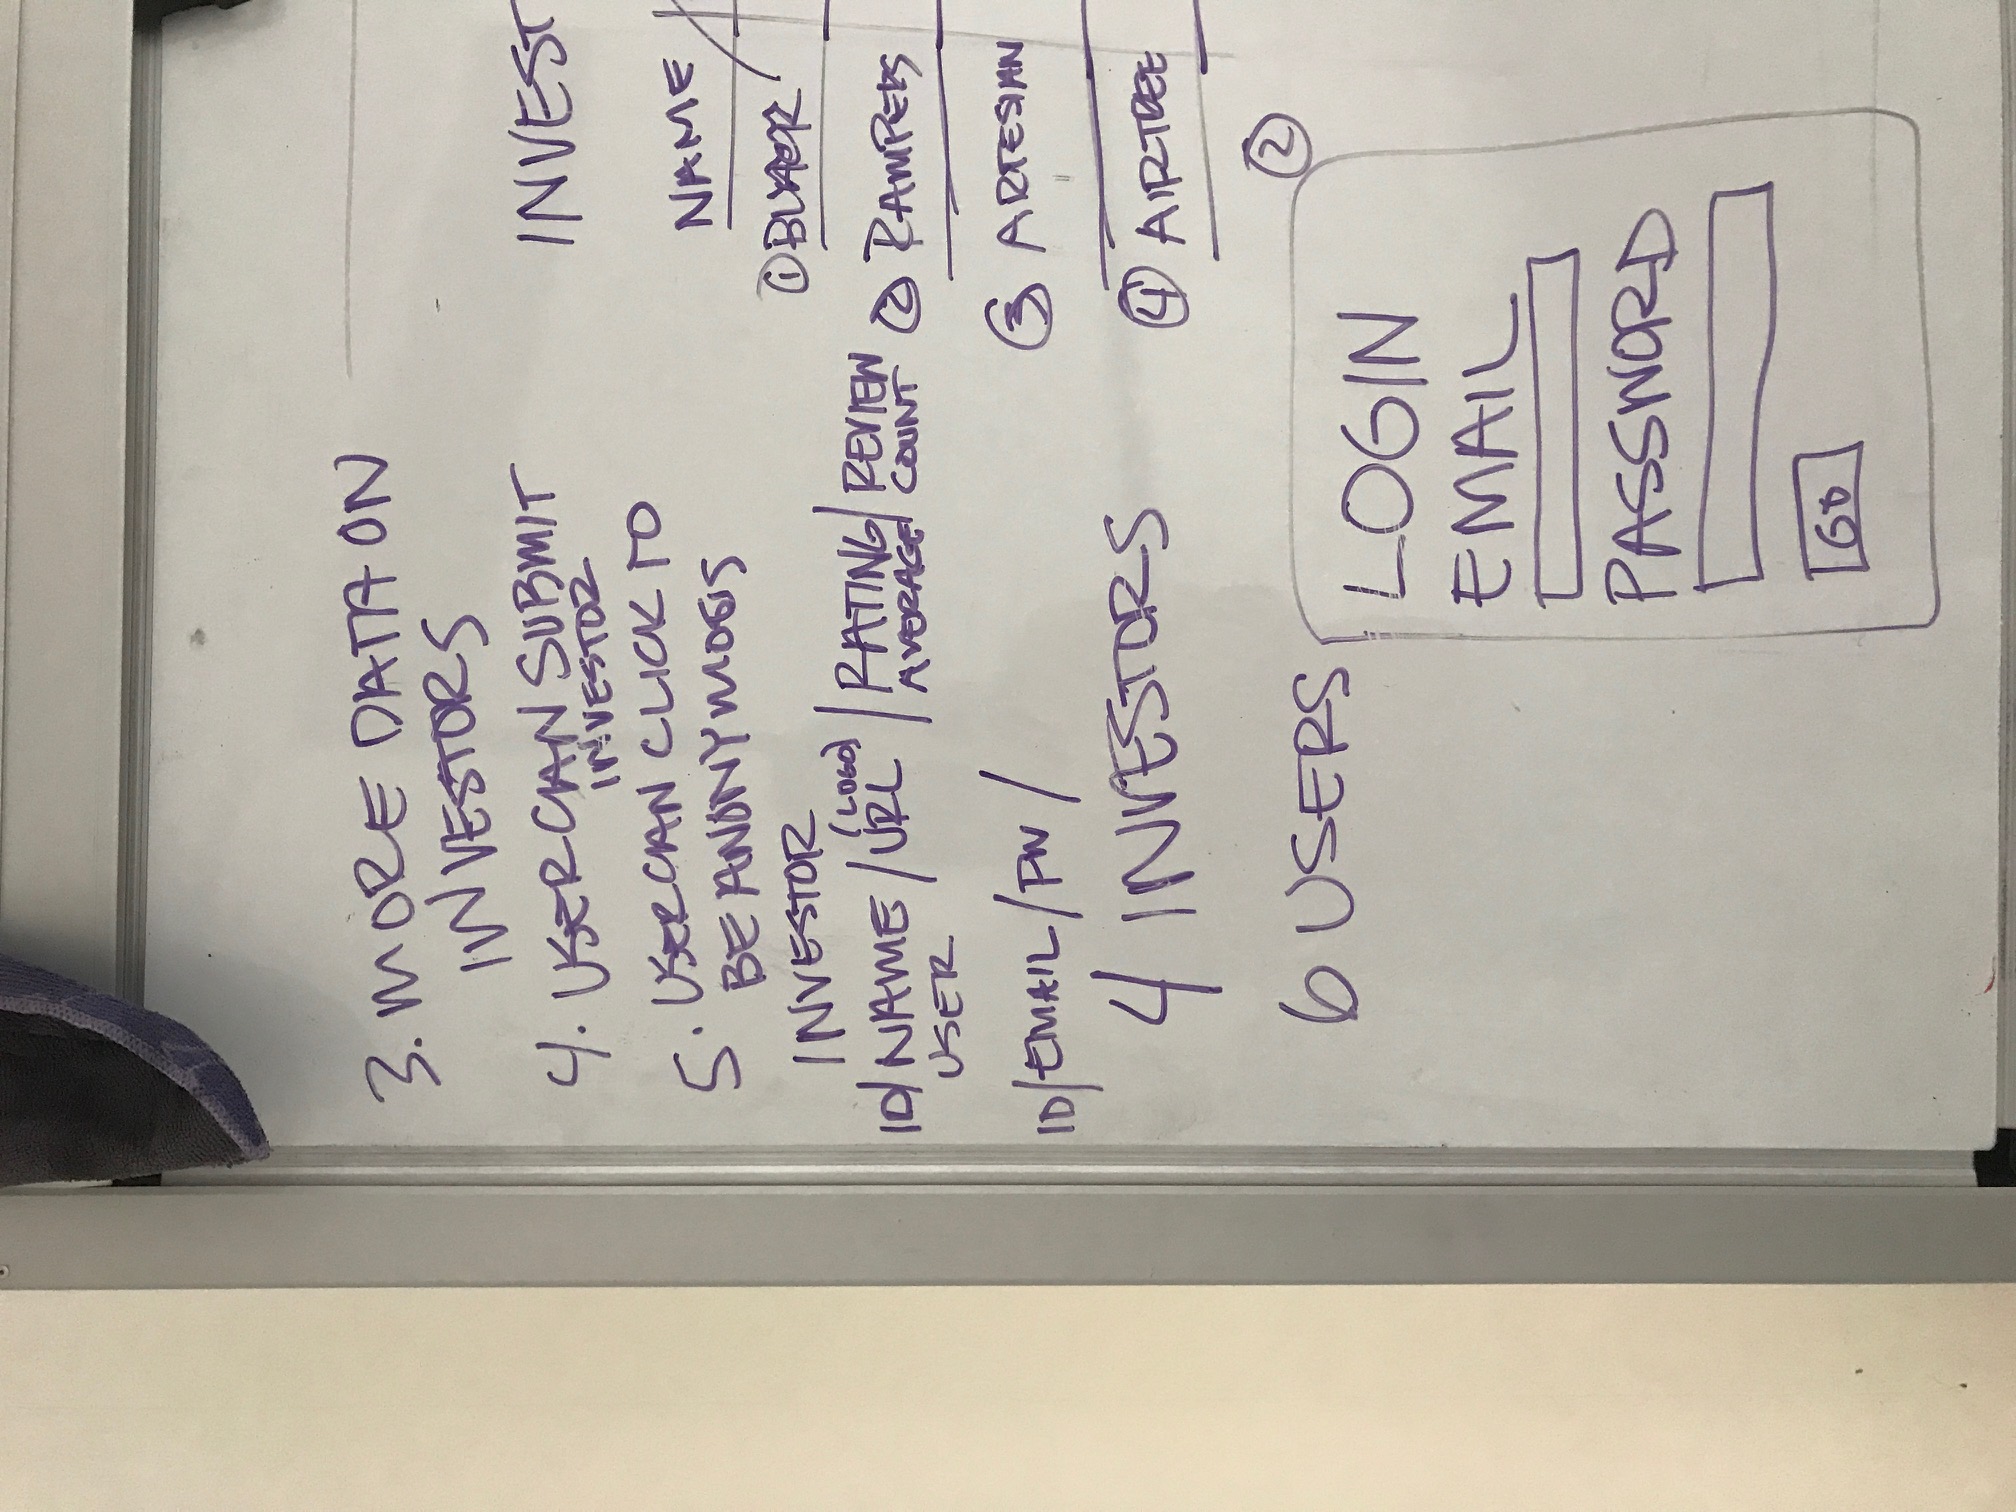 3. MORE DATA ON
INVESTORS
4. USER CAN SUBMIT
INVESTOR
5. USER CAN CLICK TO
BE ANONYMOUS
INVESTOR
ID/NAME/URL (LOGO)/RATING AVERAGE/REVIEW COUNT
USER
ID/EMAIL/PW/
4 INVESTORS
6 USERS
INVEST
NAME
①
② RAMPERS
③ ARTESIAN
④ AIRTREE
②
LOGIN
EMAIL
PASSWORD
GO